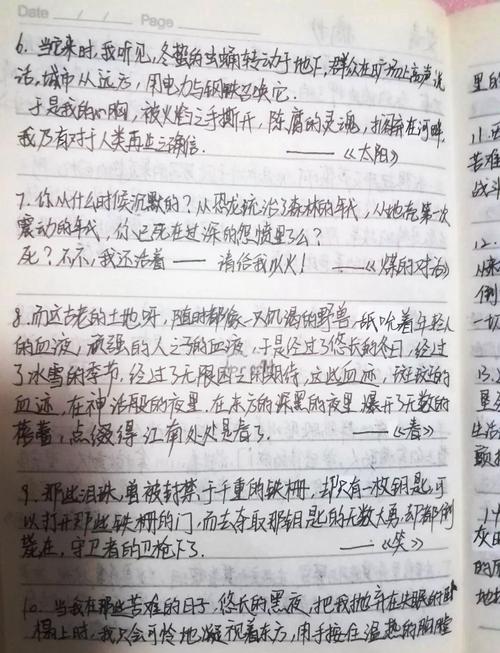 Date / Page
6. 当它来时,我听见,冬蛰的虫蛹转动于地下,群众在旷场上高声说
话,城市从远方,用电力与钢铁召唤它.
于是我的心胸,被火焰之手撕开,陈腐的灵魂,搁弃在河畔,
我乃有对于人类再生之确信. ——《太阳》
7. 你从什么时候沉默的?从恐龙统治了森林的年代,从地壳第一次
震动的年代,你已死在过深的怨愤里了么?
死?不,不,我还活着——请给我以火! ——《煤的对话》
8. 而这古老的土地呀,随时都像一只饥渴的野兽,舐吮着年轻人
的血液,顽强的人之子的血液,于是经过了悠长的冬日,经过
了冰雪的季节,经过了无限困乏的期待,这些血迹,斑斑的
血迹,在神话般的夜里,在东方的深黑的夜里,爆开了无数的
蓓蕾,点缀得江南处处是春了. ——《春》
9. 那些泪珠,曾被封禁于千重的铁栅,却只有一枚钥匙,可
以打开那些铁栅的门,而去夺取那钥匙的无数大勇,却都倒
毙在,守卫者的刀枪下了. ——《笑》
10. 当我在那些苦难的日子,悠长的黑夜,把我抛弃在失眠的卧
榻上时,我只会可怜地凝视着东方,用手按住温热的胸膛
里的
11.
苦难
战斗
12.
倒
一切
13.
生活
颤
灰
的
地